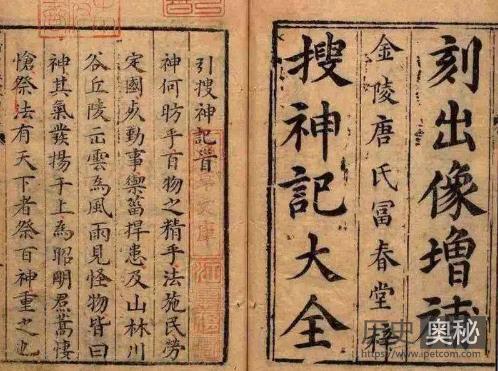 刻出像增補
金陵唐氏冨春堂梓
搜神記大全
引搜神記首
神何昉乎百物之精乎法施民勞
定國死勤事禦菑捍患及山林川
谷丘陵出雲為風雨見怪物皆曰
神其氣發揚于上為昭明焄蒿悽
愴祭法有天下者祭百神重之也
历史奥秘
https://www.ipetcom.com